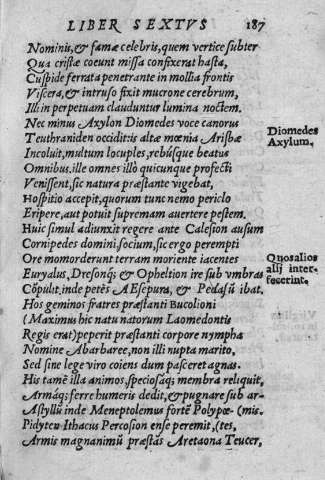 LIBER SEXTVS 187
Nominis, & famæ celebris, quem vertice subter
Qua cristæ coeunt missa confixerat hasta,
Cuspide ferrata penetrante in mollia frontis
Viscera, & intruso fixit mucrone cerebrum,
Illi in perpetuam clauduntur lumina noctem.
Nec minus Axylon Diomedes voce canorus
Teuthraniden occidit: is altæ mœnia Arisbæ
Diomedes
Axylum.
Incoluit, multum locuples, rebúsque beatus
Omnibus. ille omnes illò quicunque profecti
Venissent, sic natura præstante vigebat,
Hospitio accepit, quorum tunc nemo periclo
Eripere, aut potuit supremam auertere pestem.
Huic simul adiunxit regere ante Calesion ausum
Cornipedes domini, socium, sic ergo perempti
Ore momorderunt terram moriente iacentes
Quosalios
alij inter-
fecerint.
Euryalus, Dresonq; & Opheltion ire sub vmbras
Cōpulit. inde petēs AEsepura, & Pedasū ibat.
Hos geminos fratres præstanti Bucolioni
(Maximus hic natu natorum Laomedontis
Regis erat) peperit præstanti corpore nympha
Nomine Abarbaree, non illi nupta marito,
Sed sine lege viro coiens dum pasceret agnas.
His tamē illa animos, speciosáq; membra reliquit,
Armáq; ferre humeris dedit, & pugnare sub ar-
Astyllū inde Meneptolemus fortē Polypœ- (mis.
Pidyten Ithacus Percosion ense peremit, (tes,
Armis magnanimū præstās Aretaona Teucer,